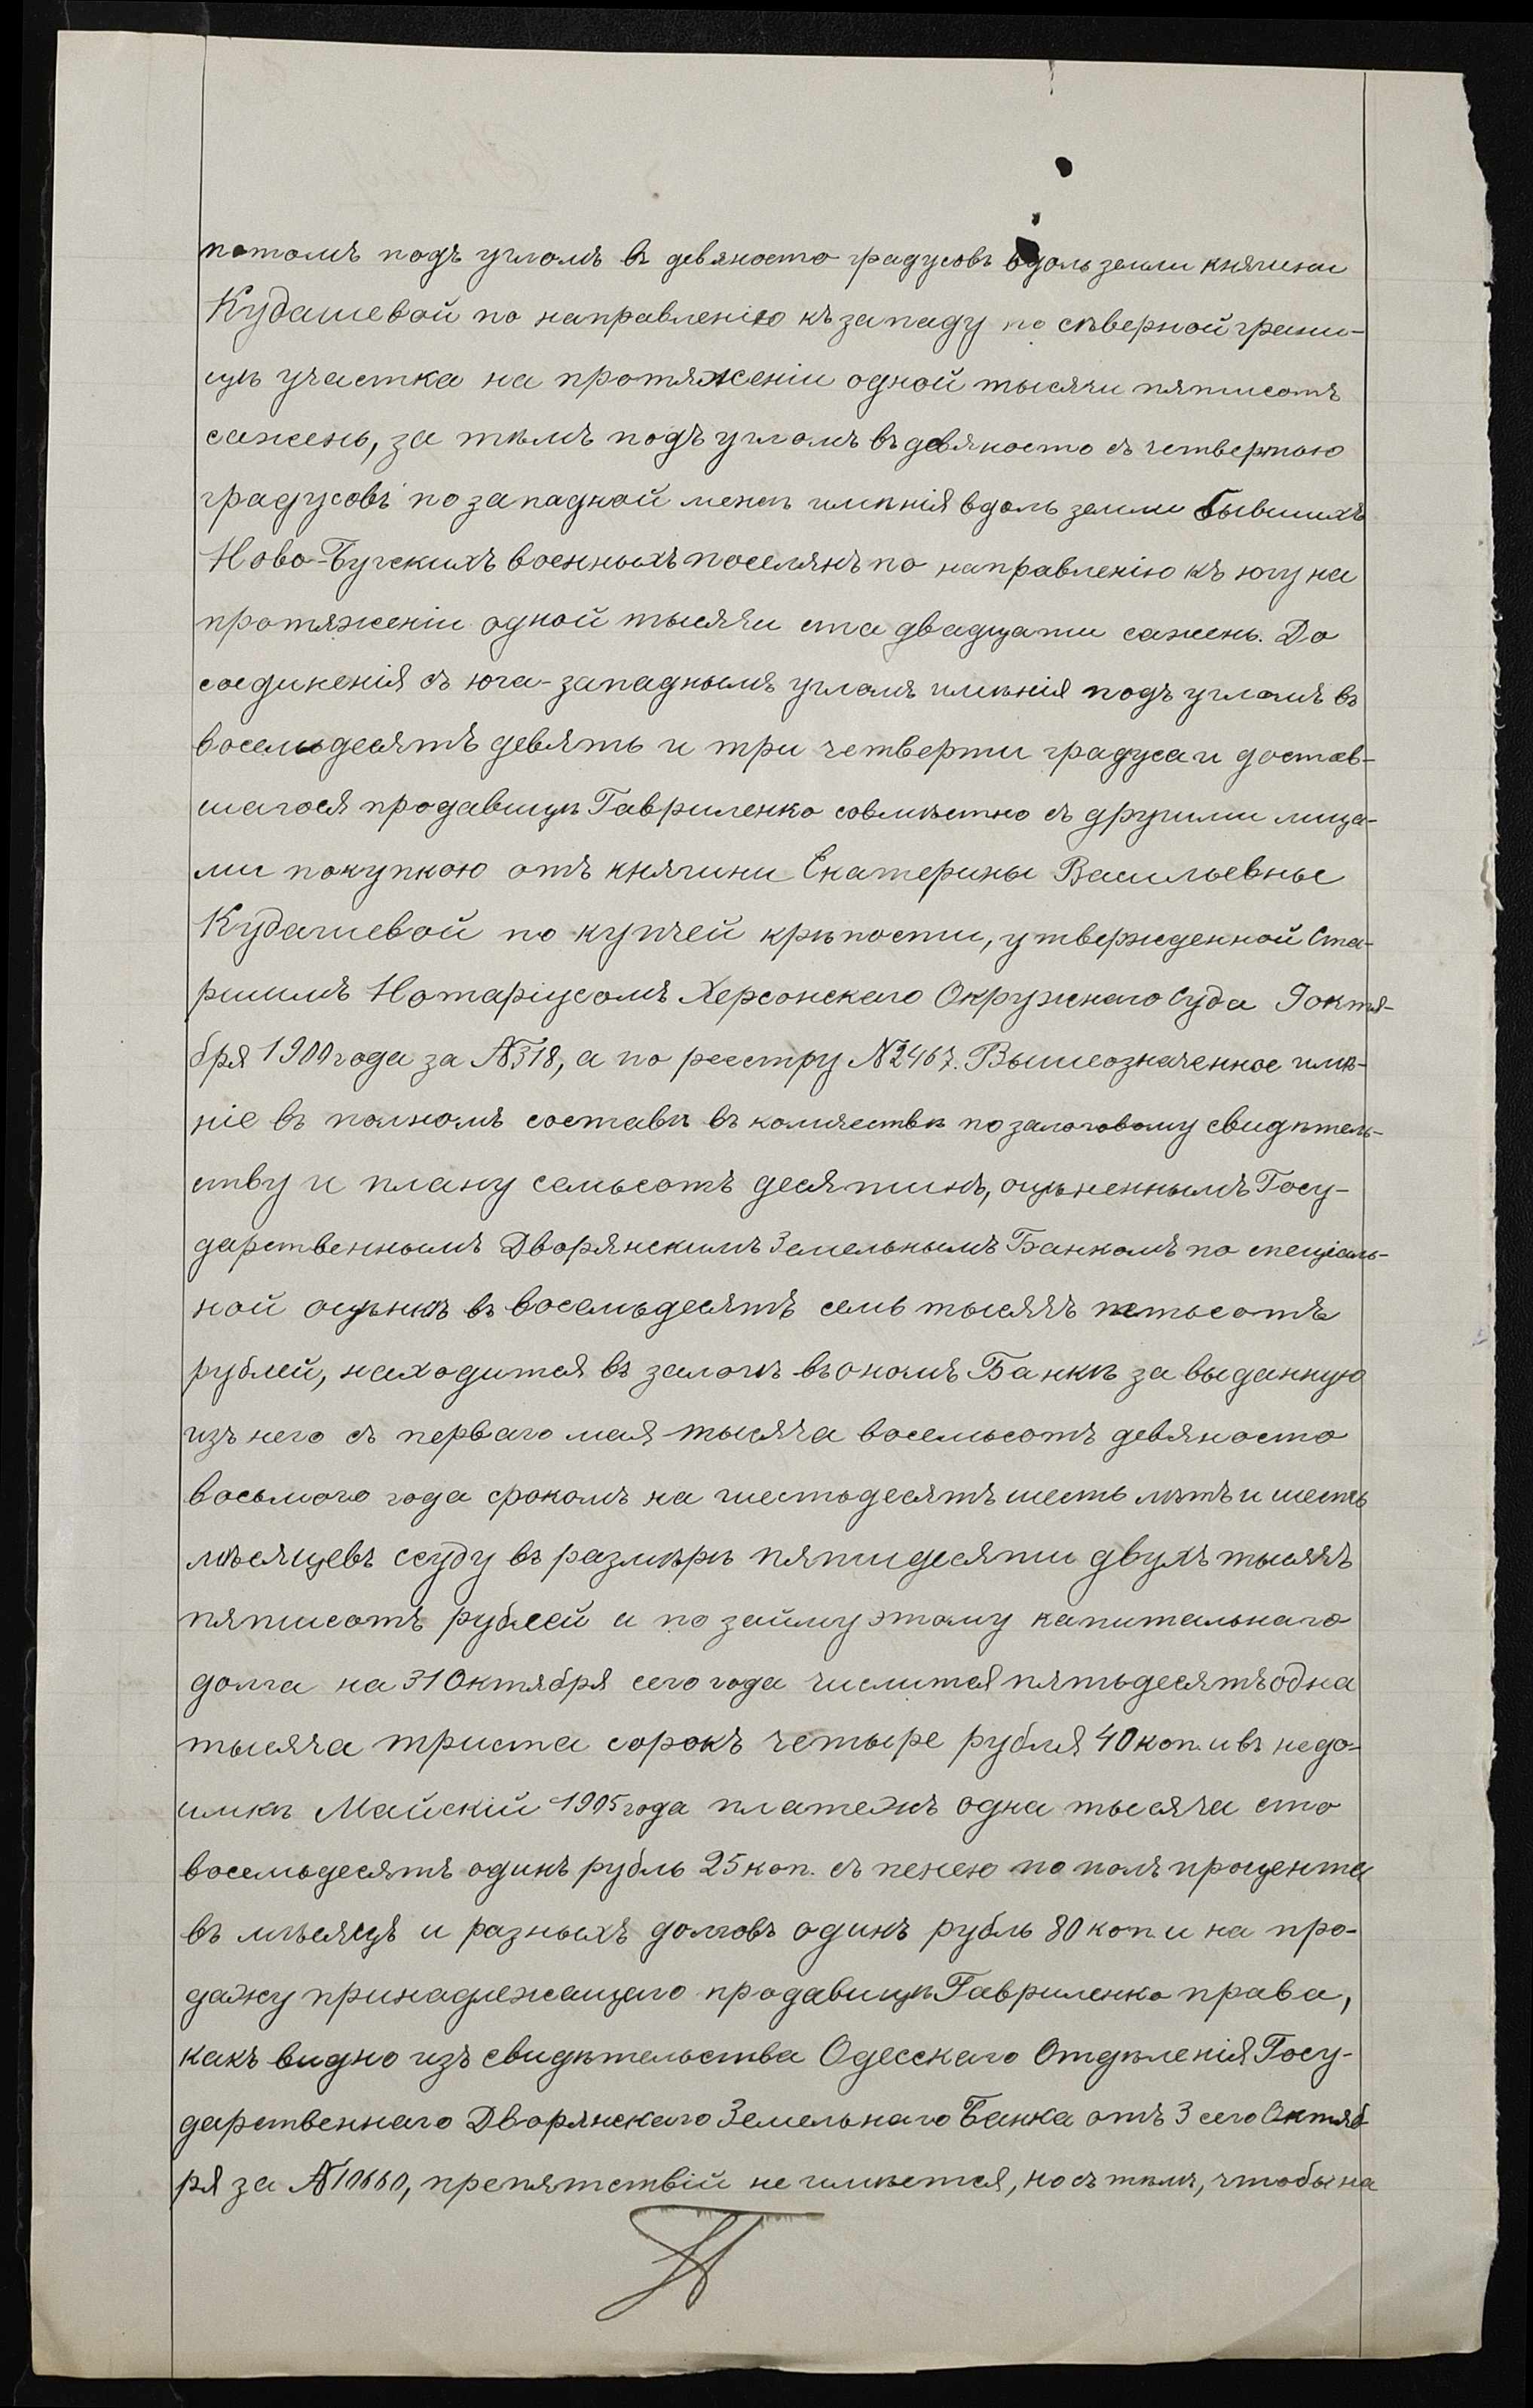 потомъ подъ угломъ въ девяносто градусовъ вдоль земли княгини
Кудашевой по направленію къ западу по сѣверной грани-
цѣ участка на протяженіи одной тысячи пятисотъ
сажень, за тѣмъ подъ угломъ въ девяносто съ четвертью
градусовъ по западной межѣ имѣнія вдоль земли бывшихъ
Ново-Бугскихъ военныхъ поселянъ по направленію къ югу на
протяженіи одной тысячи ста двадцати сажень. До
соединенія съ юга-западнымъ угломъ имѣнія подъ угломъ въ
восемьдесятъ девять и три четверти градуса и достав-
шагося продавицѣ Гавриленко совмѣстно съ другими лица-
ми покупкою отъ княгини Екатерины Васильевны
Кудашевой по купчей крѣпости, утвержденной Ста-
ршимъ Нотаріусомъ Херсонскаго Окружнаго Суда 9 октя-
бря 1900 года за №318, а по реестру №2467. Вышеозначенное имѣ-
ніе въ полномъ составѣ въ количествѣ по залоговому свидѣтель-
ству и плану семьсотъ десятинъ, оцѣненнымъ Госу-
дарственнымъ Дворянскимъ Земельнымъ Банкомъ по спеціаль-
ной оцѣнкѣ въ восемьдесятъ семь тысячъ пятьсотъ
рублей, находится въ залогѣ въ ономъ Банкѣ за выданную
изъ него съ перваго мая тысяча восемьсотъ девяносто
восьмого года срокомъ на шестьдесятъ шесть лѣтъ и шесть
мѣсяцевъ ссуду въ размѣрѣ пятидесяти двухъ тысячъ
пятисотъ рублей и по займу этому капитальнаго
долга на 31 Октября сего года числится пятьдесятъ одна
тысяча триста сорокъ четыре рубля 40 коп. и въ недо-
имкѣ Майскій 1905 года платежъ одна тысяча сто
восемьдесятъ одинъ рубль 25 коп. съ пенею по полъ процента
въ мѣсяцъ и разныхъ долговъ одинъ рубль 80 коп. и на про-
дажу принадлежащаго продавицѣ Гавриленко права,
какъ видно изъ свидѣтельства Одесскаго Отдѣленія Госу-
дарственнаго Дворянскаго Земельнаго Банка отъ 3 сего Октяб
ря за №10660, препятствій не имѣется, но съ тѣмъ, чтобы на